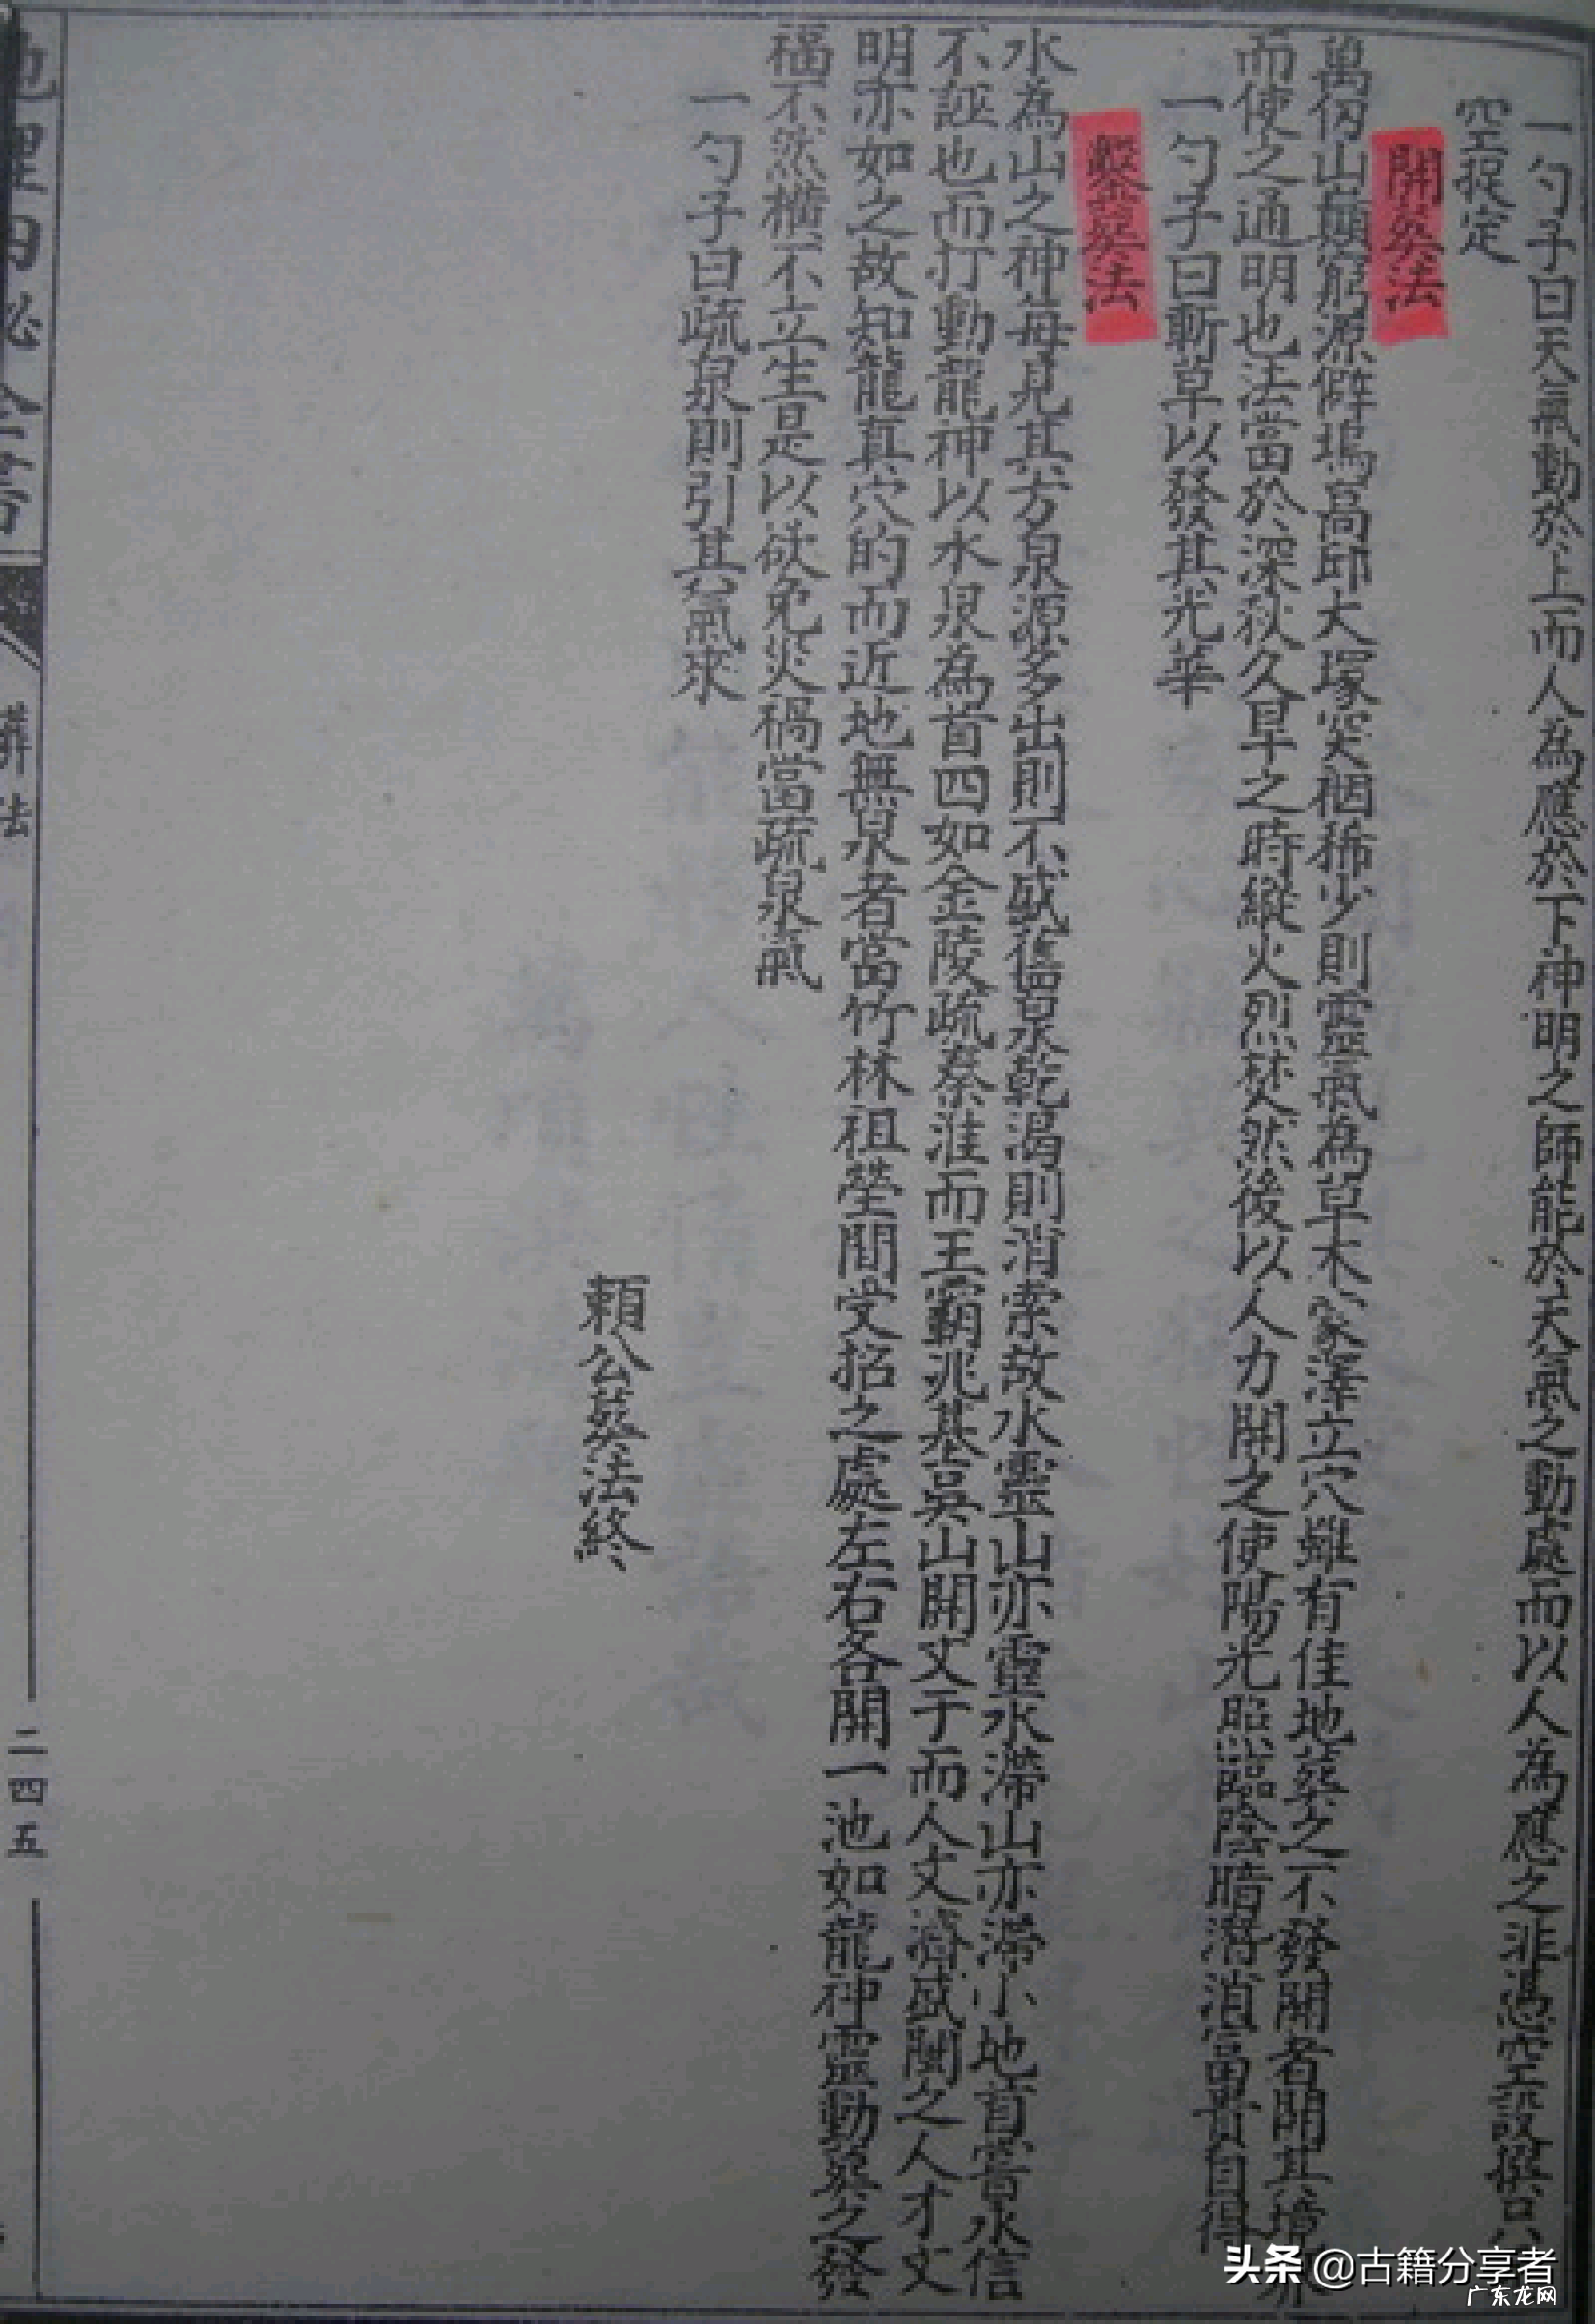 一勺子曰天氣動於上而人為應於下神明之師能於天氣之動處而以人為應之非憑空設撰只
空捉定
開葬法
萬仞山巔窮源僻塢高邱大塚突稀少則靈氣為草木蒙澤立穴雖有佳地葬之不發開者開其境界
而使之通明也法當於深秋久旱之時縱火烈焚然後以人力開之使陽光照臨陰暗潛消富貴自得
一勺子曰斬草以發其光華
鑿葬法
水為山之神每見其方泉源多出則不盛舊泉乾渴則消索故水靈山亦靈水滯山亦滯小地首當水信
不誣也而打動龍神以水泉為首四如金陵疏秦淮而王霸兆基吳山開丈于而人文濟盛閩之人才丈
明亦如之故知龍真穴的而近地無泉者當竹林祖塋間受招之處左右各開一池如龍神靈動葬之發
福不然橫不立生是以欲免災禍當疏泉氣
一勺子曰疏泉則引其氣來
賴公葬法終
地理
二四五
头条 @古籍分享者
广东龙网